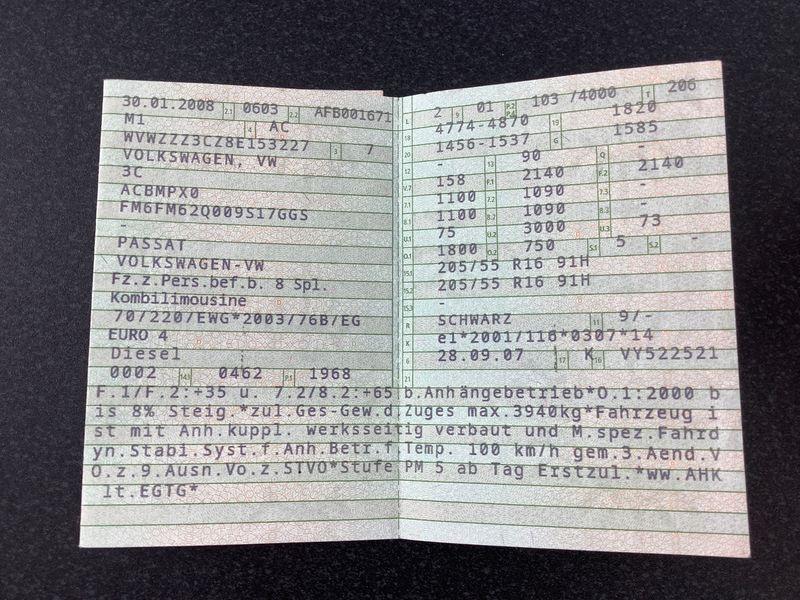 30.01.2008 2.1 0603 2.2 AFB001671
M1 4 AC
WVWZZZ3CZ8E153227 3 7
VOLKSWAGEN, VW
3C
ACBMPX0
FM6FM62Q009S17GGS
-
PASSAT
VOLKSWAGEN-VW
Fz.z.Pers.bef.b. 8 Spl.
Kombilimousine
70/220/EWG*2003/76B/EG
EURO 4
Diesel
0002 14.1 0462 P.1 1968
L 2 9 01 P.2 P.4 103 /4000 T 206
18 4774-4870 19 1820
20 1456-1537 G 1585
12 - 13 90 Q -
V.7 158 F.1 2140 F.2 2140
7.1 1100 7.2 1090 7.3 -
8.1 1100 8.2 1090 8.3 -
U.1 75 U.2 3000 U.3 73
O.1 1800 O.2 750 S.1 5 S.2 -
15.1 205/55 R16 91H
15.2 205/55 R16 91H
15.3 -
R SCHWARZ 11 9/-
K e1*2001/116*0307*14
6 28.09.07 17 K 16 VY522521
21
F.1/F.2:+35 u. 7.2/8.2:+65 b.Anhängebetrieb*O.1:2000 b
is 8% Steig.*zul.Ges-Gew.d.Zuges max.3940kg*Fahrzeug i
st mit Anh.kuppl. werksseitig verbaut und M.spez.Fahrd
yn.Stabi.Syst.f.Anh.Betr.f.Temp. 100 km/h gem.3.Aend.V
O.z.9.Ausn.Vo.z.STVO*Stufe PM 5 ab Tag Erstzul.*ww.AHK
lt.EGTG*